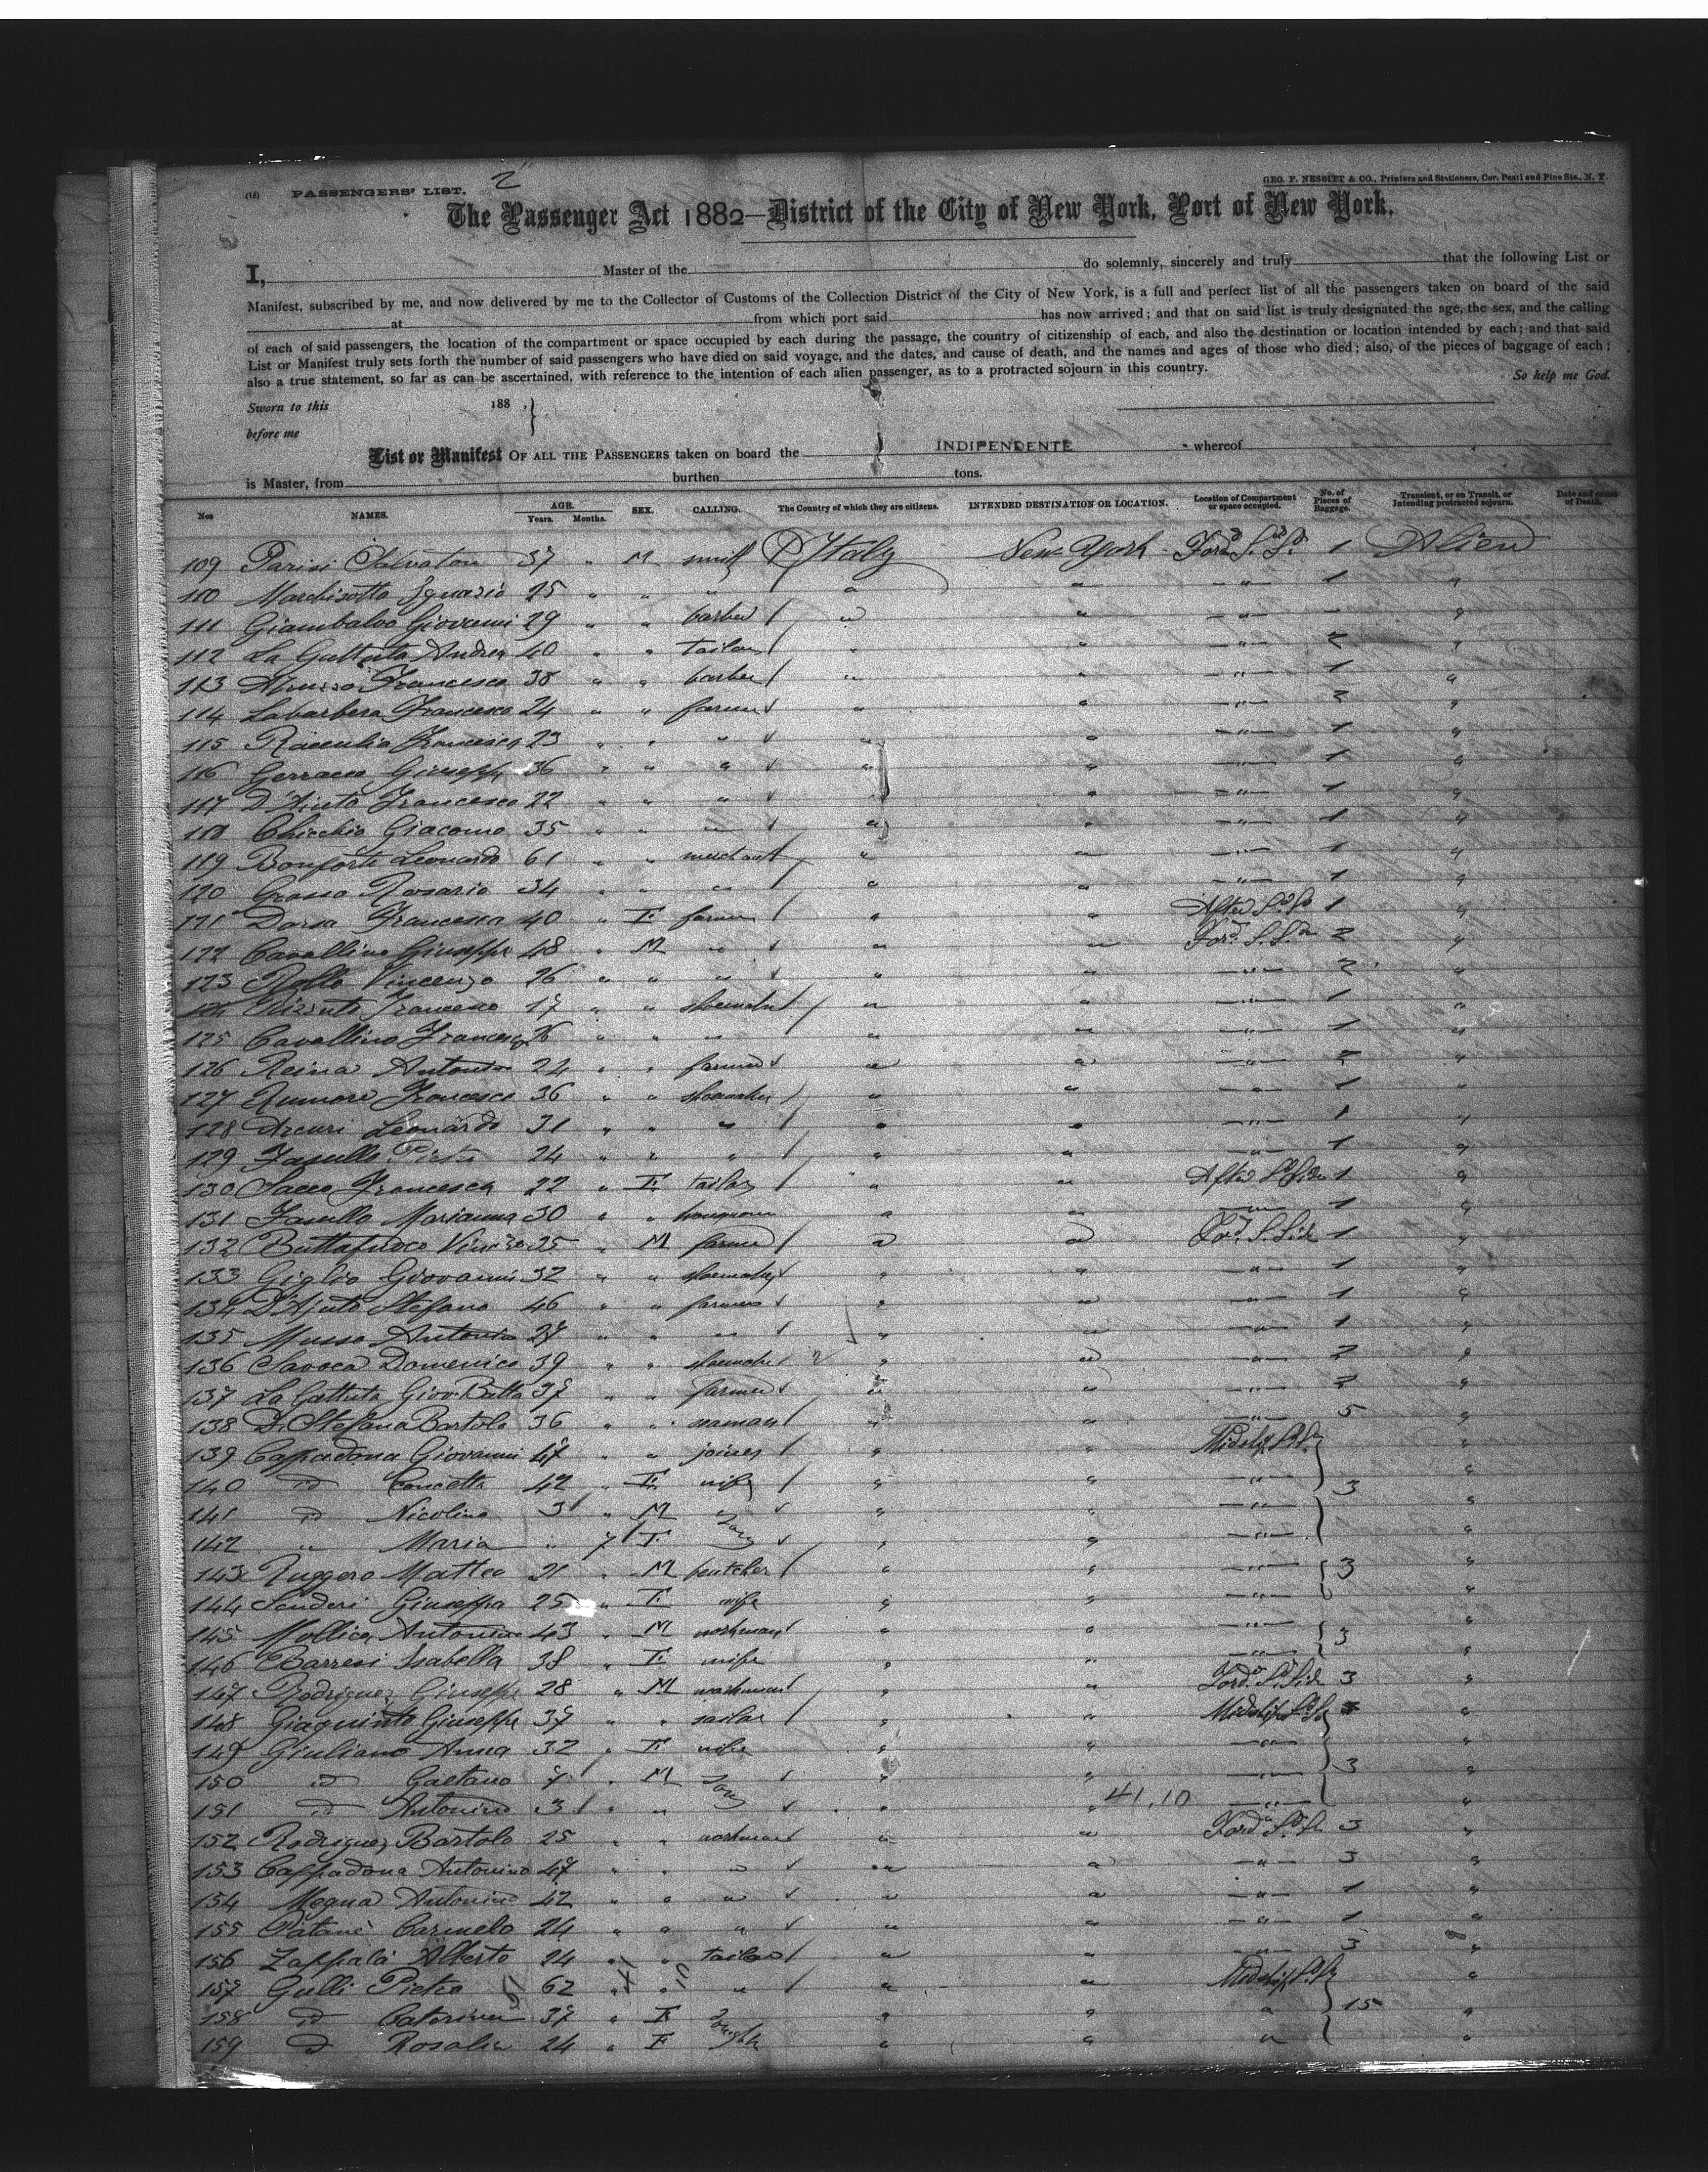 (12) PASSENGERS' LIST. 2
GEO. F. NESBITT & CO., Printers and Stationers, Cor. Pearl and Pine Sts., N. Y.
The Passenger Act 1882—District of the City of New York, Port of New York.
I, Master of the do solemnly, sincerely and truly that the following List or
Manifest, subscribed by me, and now delivered by me to the Collector of Customs of the Collection District of the City of New York, is a full and perfect list of all the passengers taken on board of the said
at from which port said has now arrived; and that on said list is truly designated the age, the sex, and the calling
of each of said passengers, the location of the compartment or space occupied by each during the passage, the country of citizenship of each, and also the destination or location intended by each; and that said
List or Manifest truly sets forth the number of said passengers who have died on said voyage, and the dates, and cause of death, and the names and ages of those who died; also, of the pieces of baggage of each;
also a true statement, so far as can be ascertained, with reference to the intention of each alien passenger, as to a protracted sojourn in this country. So help me God.
Sworn to this 188 . }
before me
List or Manifest OF ALL THE PASSENGERS taken on board the INDIPENDENTE whereof
is Master, from burthen tons.
Nos NAMES. AGE. Years. Months. SEX. CALLING. The Country of which they are citizens. INTENDED DESTINATION OR LOCATION. Location of Compartment or space occupied. No. of Pieces of Baggage. Transient, or on Transit, or Intending protracted sojourn. Date and cause of Death.
109 Parisi Salvatore 37 " M Italy New York Ford S. Sd. 1 Alien
110 Marchisotta Ignazio 25 " " " " " -"- 1 "
111 Giambalvo Giovanni 29 " " barber / " " -"- "
112 La Gattuta Andrea 40 " " tailor / " " -"- 2 "
113 Francesco 38 " " barber / " " -"- 1 "
114 Labarbera Francesco 24 " " farmer " " -"- 2 "
115 23 " " " " " -"- 1 "
116 Gerraci Giuseppe 36 " " " " " -"- 1 "
117 D'Aiuto Francesco 22 " " " " " -"- 1 "
118 Chicchio Giacomo 35 " " " " " -"- 1 "
119 Bonforte Leonardo 61 " " merchant " " -"- 1 "
120 Grasso Rosario 34 " " " / " " -"- 1 "
121 Dorsa Francesca 40 " F farmer / " " After S. Sd. 1 "
122 Cavallino Giuseppe 48 " M " " " Ford. S. Sd. 2 "
123 Rollo Vincenzo 26 " " " " " -"- 2 "
Francesco 17 " " shoemaker / " " -"- 1 "
125 Cavallino Francesco 26 " " " " " -"- 1 "
126 Reina Antonino 24 " " farmer " " -"- 2 "
127 Francesco 36 " " shoemaker / " " -"- 1 "
128 Arcuri Leonardo 31 " " " / " " -"- 1 "
129 Fasullo Pietro 24 " " " / " " -"- 1 "
130 Sacco Francesca 22 " F tailor / " " After S. Side 1 "
131 Fasullo Marianna 30 " " " " -"- 1 "
132 Buttafuoco 25 " M farmer / " " Ford. S. Side 1 "
133 Giglio Giovanni 32 " " shoemaker " " -"- 1 "
134 D'Ajuto Stefano 46 " " farmer " " -"- 1 "
135 Musso Antonino 27 " " " " " -"- 1 "
136 Savoca Domenico 39 " " shoemaker " " -"- 2 "
137 La Gattuta Giov. Batta 37 " " farmer " " -"- 2 "
138 Di Stefano Bartolo 36 " " seaman / " " -"- 5 "
139 Cappadona Giovanni 47 " " joiner / " " Midship S. Sd. "
140 id Concetta 42 " F wife / " " -"- 3 "
141 id Nicolino 3 " M " " " -"- "
142 " Maria " 7 F " " -"- "
143 Ruggero Matteo 21 " M butcher / " " -"- 3 "
144 Scuderi Giuseppa 25 " F wife " " -"- "
145 Mollica Antonino 43 " M workman " " -"- 3 "
146 Barresi Isabella 38 " F wife " " -"- "
147 Rodriguez Giuseppe 28 " M workman " " Ford. S. Side 3 "
148 Giaquinta Giuseppe 37 " " sailor / " " Midship S. Sd. "
149 Giuliano Anna 32 " F wife " " -"- "
150 id Gaetano 7 " M " " -"- 3 "
151 id Antonino 3 " " " " 41.10 -"- "
152 Rodriguez Bartolo 25 " " workman " " Ford S. Sd. 3 "
153 Cappadona Antonino 47 " " " " " -"- 3 "
154 Megna Antonino 42 " " " " " -"- 1 "
155 Patanè Carmelo 24 " " " " " -"- 1 "
156 Zappalà Alberto 24 " " tailor / " " -"- 3 "
157 Gulli Pietro 62 " " " / " " Midship S. Sd. "
158 id Caterina 37 " F " " " 15 "
159 id Rosalia 24 " F " " " "